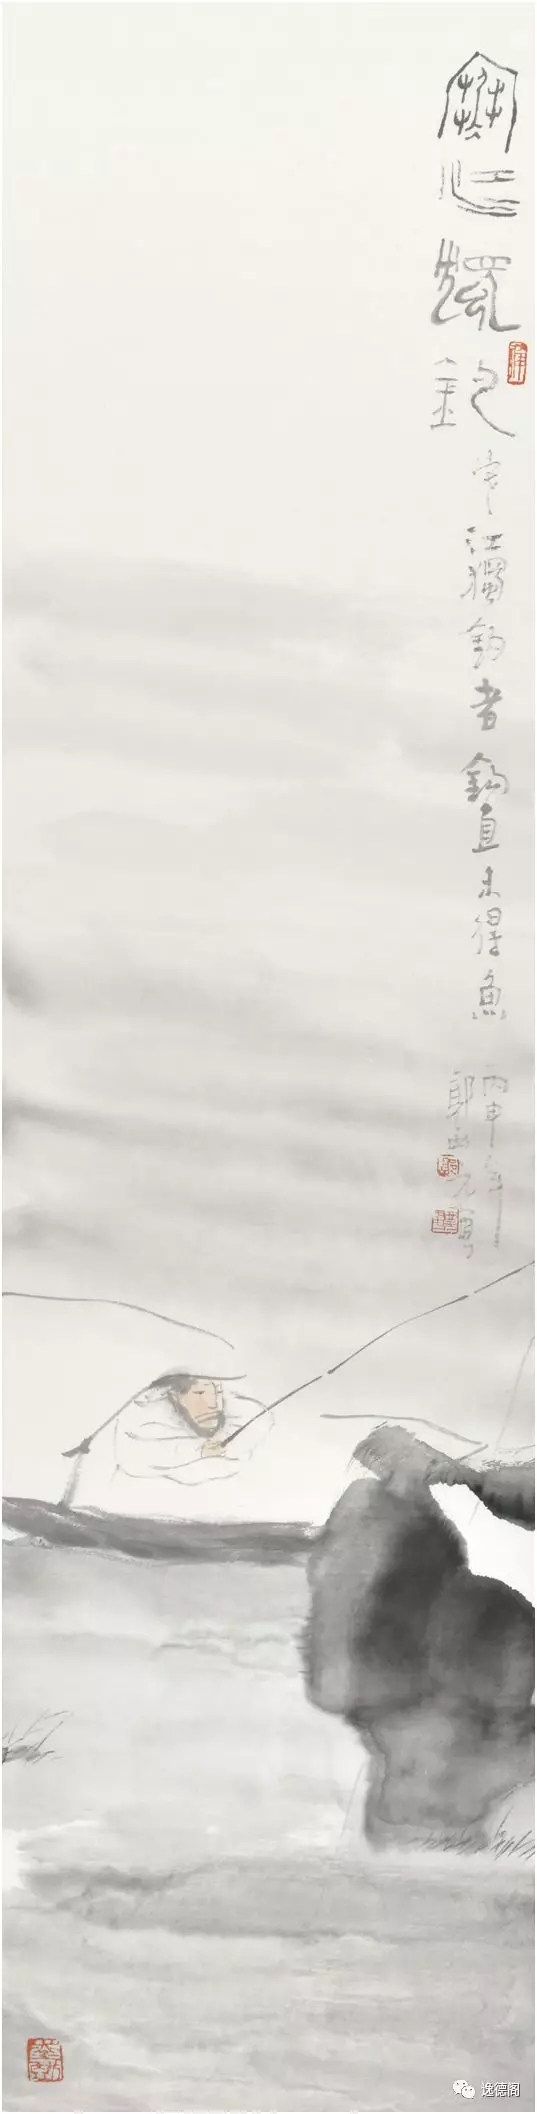 寒江獨釣
寒江獨釣者鈎直未得魚
丙申年
郭 元寫
逸德阁